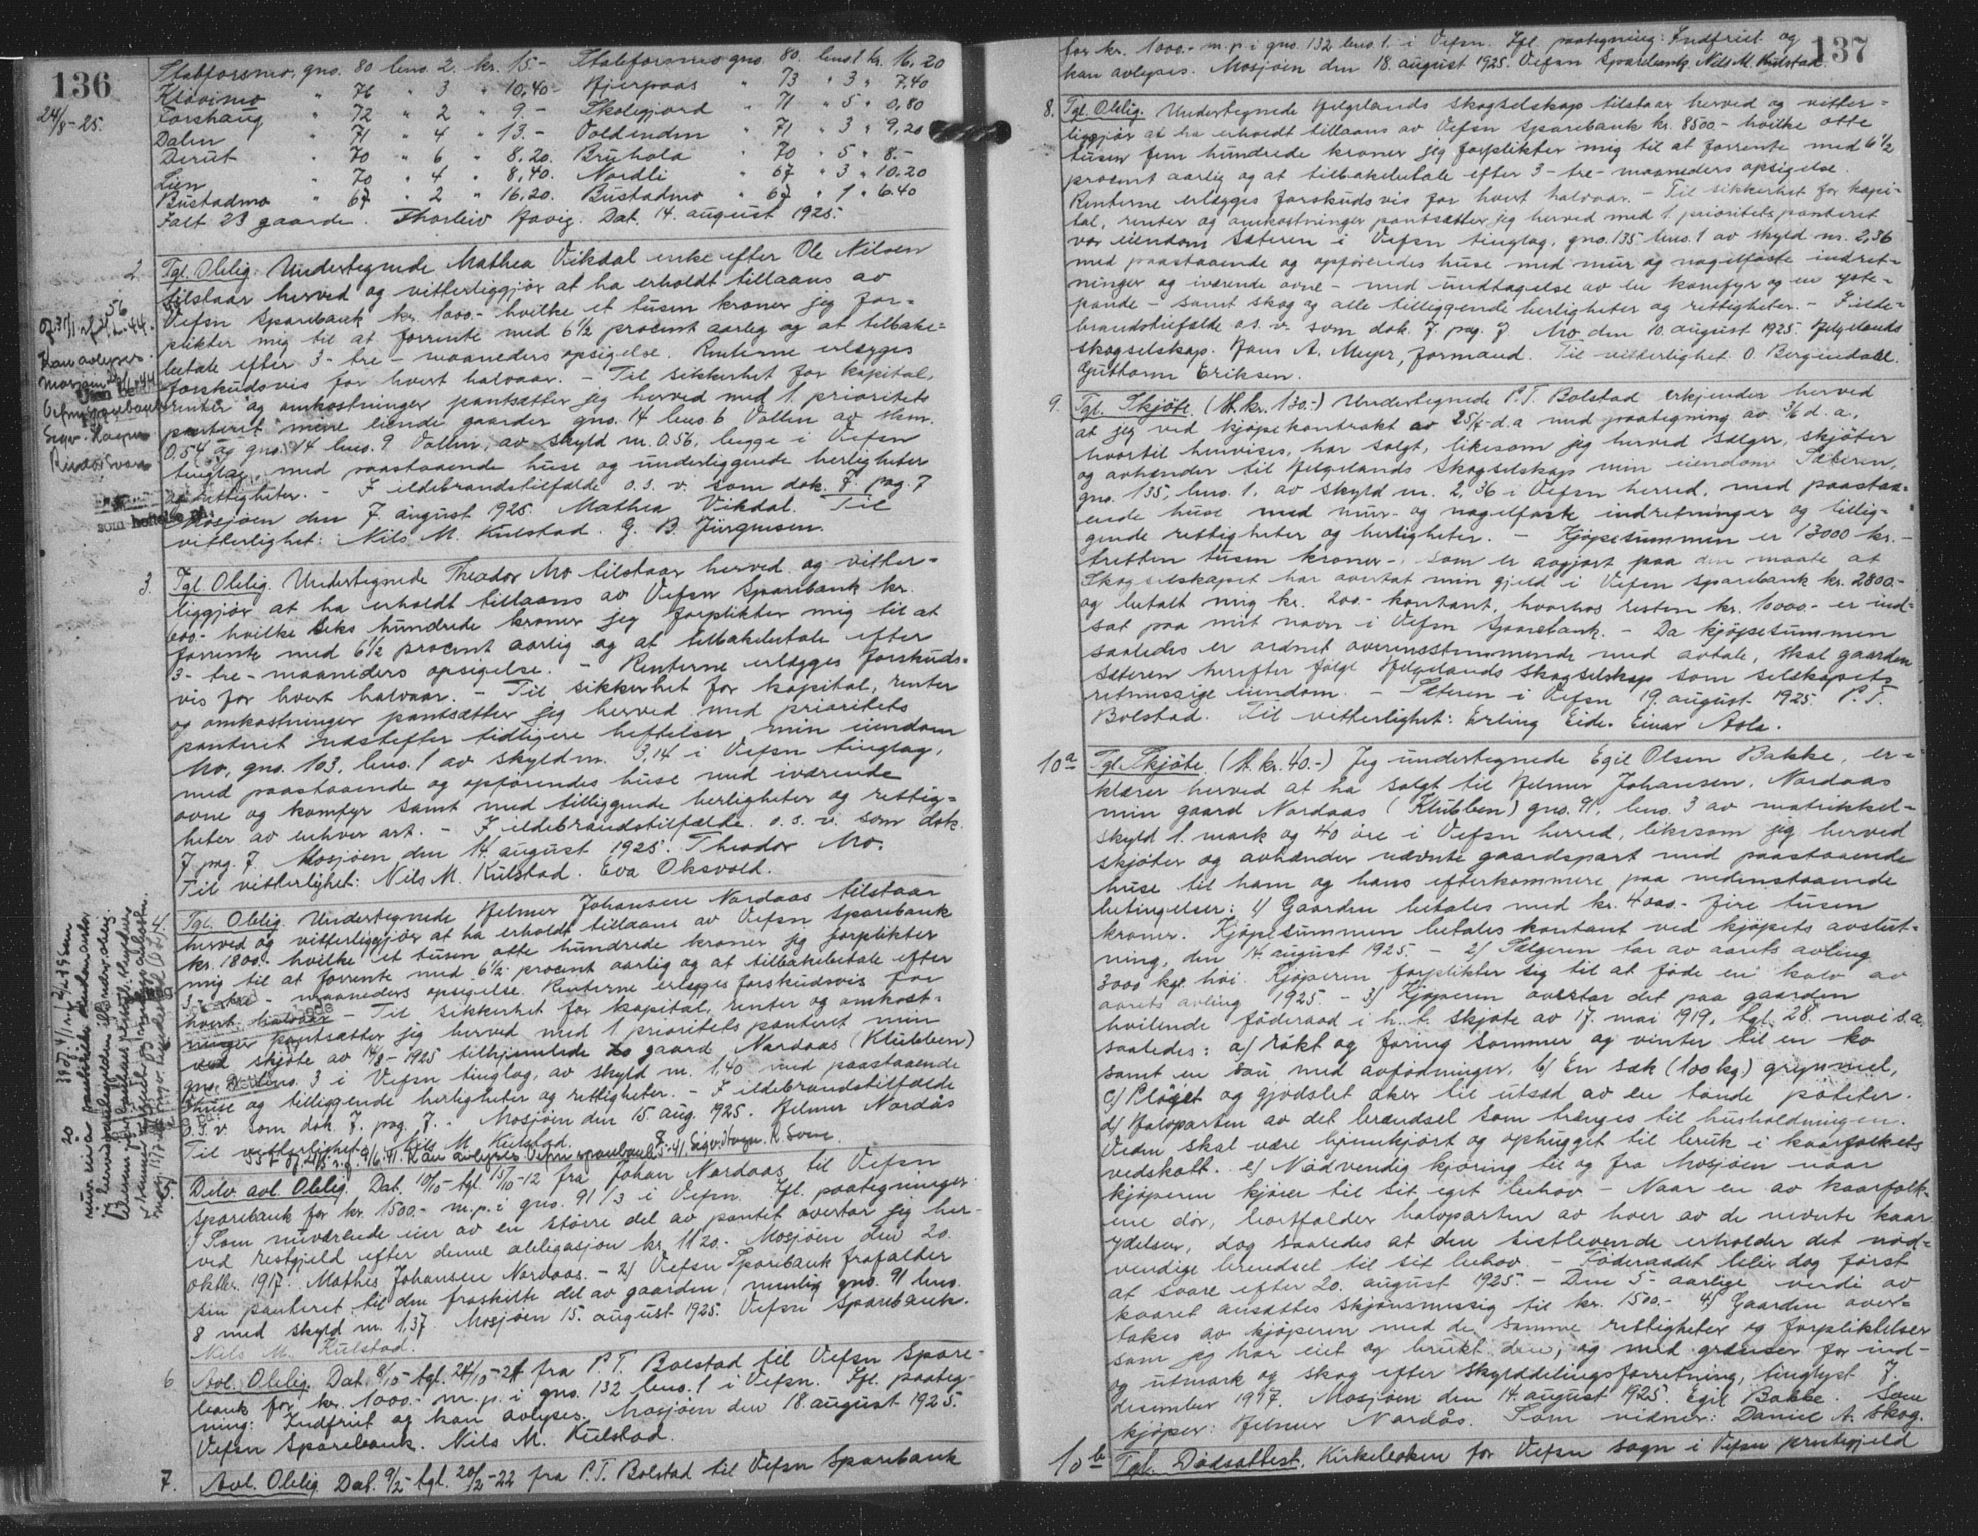 136
24/8-25.
Stabforsmo, gno. 80 bno. 2. kr. 15.- Stabforsmo gno. 80. bno 1 kr. 16,20
Klovimo " 76 " 3 " 10,40 - Hjerpaas " 73 " 3 " 7,40
Forshaug " 72 " 2 " 9.- Skolegjord " 71 " 5 " 0,80
Dalen " 71 " 4 " 13.- Voldenden " 71 " 3 " 9,20
Derut " 70 " 6 " 8,20. Bruhola " 70 " 5 " 8.-
Lien " 70 " 4 " 8,40. Nordli " 67 " 3 " 10,20
Bustadmo " 67 " 2 " 16,20. Bustadmo " 67 " 1 " 6.40
Ialt 23 gaarde. Thorleiv Havig. Dat. 14. august 1925.
2. Tgl. Oblig. Undertegnede Mathea Vikdal enke efter Ole Nilsen
tilstaar herved og vitterliggjør at ha erholdt tillaans av
Vefsn Sparebank kr. 1000.- hvilke et tusen kroner jeg for-
plikter mig til at forrente med 6½ procent aarlig og at tilbake-
betale efter 3 - tre - maaneders opsigelse. Renterne erlægges
forskudsvis for hvert halvaar. - Til sikkerhet for kapital,
renter og omkostninger pantsætter jeg herved med 1. prioritets
panteret mine eiende gaarder gno. 14 bno 6 Vollen av skm.
0.54 og gno. 14 bno. 9 Vollen, av skyld m. 0.56, begge i Vefsn
tinglag, med paastaaende huse og underliggende herligheter
og rettigheter. - I ildebrandstilfælde o.s.v. som dok. 7. pag. 7
Mosjøen den 7. august 1925 Mathea Vikdal. Til
vitterlighet: Nils M. Kulstad. G. B. Jürgensen.
Kan avlyses.
Vefsn sparebank
som heftelse paa
3. Tgl. Oblig. Undertegnede Theodor Mo tilstaar herved og vitter-
liggjør at ha erholdt tillaans av Vefsn Sparebank kr.
600.- hvilke seks hundrede kroner jeg forplikter mig til at
forrente med 6½ procent aarlig og at tilbakebetale efter
3- tre - maaneders opsigelse. - Renterne erlægges forskuds-
vis for hvert halvaar. - Til sikkerhet for kapital, renter
og omkostninger pantsætter jeg herved med prioritets
panteret næstefter tidligere heftelser min eiendom
Mo, gno. 103, bno. 1 av skyld m. 3,14 i Vefsn tinglag,
med paastaaende og opførendes huse med iværende
ovne og komfyr samt med tilliggende herligheter og rettig-
heter av enhver art. - I ildebrandstilfælde o.s.v. som dok.
7 pag. 7. Mosjøen den 14. august 1925. Theodor Mo.
Til vitterlighet: Nils M. Kulstad. Eva Oksvold.
4. Tgl. Oblig. Undertegnede Helmer Johansen Nordaas tilstaar
herved og vitterliggjør at ha erholdt tillaans av Vefsn Sparebank
kr. 1800.- hvilke et tusen otte hundrede kroner jeg forplikter
mig til at forrente med 6½ procent aarlig og at tilbakebetale efter
3- tre - maaneders opsigelse. Renterne erlægges forskudsvis for
hvert halvaar - Til sikkerhet for kapital, renter og omkost-
ninger pantsætter jeg herved med 1 prioritets panteret min
ved skjøte av 14/8 - 1925 tilhjemlede gaard Nordaas (Klubben)
gno. 91 bno. 3 i Vefsn tinglag, av skyld m. 1,40 med paastaaende
huse og tilliggende herligheter og rettigheter. - I ildebrandstilfælde
o.s.v. som dok. 7. pag. 7. - Mosjøen den 15. aug. 1925. Helmer Nordås
Til vitterlighet: Nils M. Kulstad.
Kan avlyses Vefsn sparebank
5. Delv. avl. Oblig. Dat. 10/10 - tgl. 15/10-12 fra Johan Nordaas til Vefsn
Sparebank for kr. 1500.- m.p. i gno. 91/3 i Vefsn. Ifl. paategninger
1) Som nuværende eier av en større del av pantet overtar jeg her-
ved restgjeld efter denne obligasjon kr. 1120.- Mosjøen den 20.
oktbr. 1917. Mathis Johansen Nordaas. - 2) Vefsn Sparebank frafalder
sin panteret til den fraskilte del av gaarden, nemlig gno. 91 bno.
8 med skyld m. 1,37. Mosjøen 15. august 1925. Vefsn Sparebank.
Nils M. Kulstad.
6 Avl. Oblig. Dat. 8/10 - tgl. 24/10-21 fra P. T. Bolstad til Vefsn Spare-
bank for kr. 1000.- m.p. i gno. 132 bno. 1 i Vefsn. Ifl. paateg-
ning: Indfriet og kan avlyses. Mosjøen den 18. august 1925.
Vefsn Sparebank. Nils M. Kulstad.
7. Avl. Oblig. Dat. 9/2 - tgl. 20/2-22 fra P. T. Bolstad til Vefsn Sparebank
137
for kr. 1000.- m.p. i gno. 132 bno. 1. i Vefsn. Ifl. paategning: Indfriet og
kan avlyses. Mosjøen den 18. august 1925. Vefsn Sparebank Nils M. Kulstad.
8. Tgl. Oblig. Undertegnede Helgelands Skogselskap tilstaar herved og vitter-
liggjør at ha erholdt tillaans av Vefsn Sparebank kr. 8500.- hvilke otte
tusen fem hundrede kroner jeg forplikter mig til at forrente med 6½
procent aarlig og at tilbakebetale efter 3- tre - maaneders opsigelse.
Renterne erlægges forskudsvis for hvert halvaar. - Til sikkerhet for kapi-
tal, renter og omkostninger pantsætter jeg herved med 1 prioritets panteret
vor eiendom Sæteren i Vefsn tinglag, gno. 135 bno. 1 av skyld m. 2,36
med paastaaende og opførendes huse med mur og nagelfaste indret-
ninger og iværende ovne - med undtagelse av en komfyr og en yste-
pande - samt skog og alle tilliggende herligheter og rettigheter. - I ilde-
brandstilfælde o.s.v. som dok. 7. pag. 7 Mo den 10. august 1925 Helgelands
skogselskap. Hans A. Meyer, formand. Til vitterlighet: O. Bergindahl.
Gutthorm Eriksen.
9. Tgl. Skjøte. (St. kr. 130.-) Undertegnede P. T. Bolstad erkjender herved
at jeg ved kjøpekontrakt av 25/5 d.a med paategning av 3/6 d.a,
hvortil henvises, har solgt, likesom jeg herved sælger, skjøter
og avhænder til Helgelands Skogselskap min eiendom Sæteren,
gno. 135, bno. 1. av skyld m. 2,36 i Vefsn herred, med paastaa-
ende huse med mur- og nagelfaste indretninger og tillig-
gende rettigheter og herligheter. - Kjøpesummen er 13000 kr. -
tretten tusen kroner -, som er avgjort paa den maate at
Skogselskapet har overtat min gjeld i Vefsn Sparebank kr. 2800.-
og betalt mig kr. 200.- kontant, hvorhos resten kr. 10000.- er ind-
sat paa mit navn i Vefsn Sparebank. - Da kjøpesummen
saaledes er ordnet overensstemmende med avtale, skal gaarden
Sæteren herefter følge Helgelands skogselskap som selskapets
retmessige eiendom. - Sæteren i Vefsn 19. august 1925 P. T.
Bolstad. Til vitterlighet: Erling Eide. Einar Aslo.
10a Tgl. Skjøte. (St. kr. 40.-) Jeg undertegnede Egil Olsen Bakke, er-
klærer herved at ha solgt til Helmer Johansen, Nordaas
min gaard Nordaas (Klubben) gno. 91, bno. 3 av matrikkel-
skyld 1. mark og 40 øre i Vefsn herred, likesom jeg herved
skjøter og avhænder nævnte gaardspart med paastaaende
huse til ham og hans efterkommere paa nedenstaaende
betingelser: 1) Gaarden betales med kr. 4000.- fire tusen
kroner. Kjøpesummen betales kontant ved kjøpets avslut-
ning, den 14. august 1925. - 2) Sælgeren tar av aarets avling
3000 kgr. høi. Kjøperen forplikter sig til at føde en kalv av
aarets avling 1925. - 3) Kjøperen overtar det paa gaarden
hvilende føderaad i h.t. skjøte av 17. mai 1919, tgl. 28. mai s.a.
saaledes: a) røkt og foring sommer og vinter til en ko
samt en sau med avfødninger, b) En sæk (100 kg.) grynmel,
c) Pløiet og gjødslet aker til utsæd av en tønde poteter.
d) Halvparten av det brændsel som trenges til husholdningen.
Veden skal være hjemkjørt og ophugget til bruk i kaarfolkets
vedskott. e) Nødvendig kjøring til og fra Mosjøen naar
kjøperen kjører til sit eget behov - Naar en av kaarfolk-
ene dør, bortfalder halvparten av hver av de nevnte kaar
ydelser, dog saaledes at den sistlevende erholder det nød-
vendige brendsel til sit behov. - Føderaadet blir dog først
at svare efter 20. august 1925. - Den 5- aarlige verdi av
kaaret ansættes skjønsmessig til kr. 1500.- 4) Gaarden over-
takes av kjøperen med de samme rettigheter og forpliktelser
som jeg har eiet og brukt den, og med grænser for ind-
og utmark og skog efter skylddelingsforretning, tinglyst 7.
desember 1917. Mosjøen den 14. august 1925. Egil Bakke. Som
kjøper: Helmer Nordås. Som vidner: Daniel A. Skog.
10b Tgl. Dødsattest. Kirkeboken for Vefsn sogn i Vefsn prestegjeld